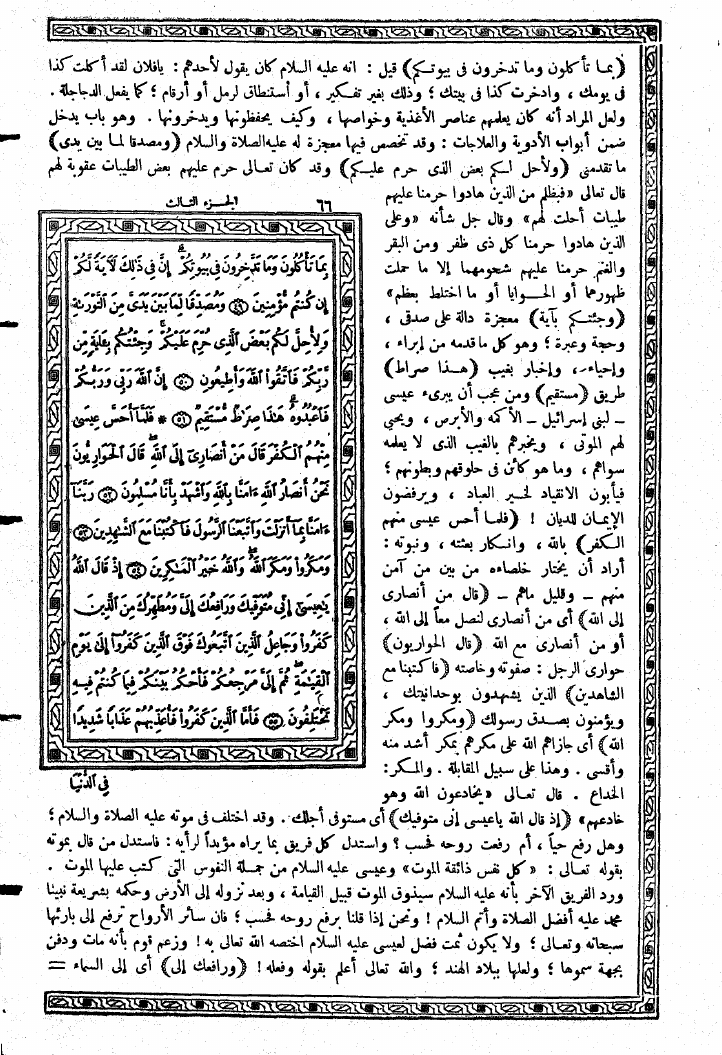 (بما تأكلون وما تدخرون فى بيوتكم) قيل : انه عليه السلام كان يقول لأحدهم : يافلان لقد أكلت كذا
فى يومك ، وادخرت كذا فى بيتك ؛ وذلك بغير تفكير ، أو استنطاق لرمل أو أرقام ؛ كما يفعل الدجاجلة .
ولعل المراد أنه كان يعلمهم عناصر الأغذية وخواصها ، وكيف يحفظونها ويدخرونها . وهو باب يدخل
ضمن أبواب الأدوية والعلاجات : وقد تخصص فيها معجزة له عليه الصلاة والسلام (ومصدقا لما بين يدى)
ما تقدمنى (ولأحل لكم بعض الذى حرم عليكم) وقد كان تعالى حرم عليهم بعض الطيبات عقوبة لهم
قال تعالى «فبظلم من الذين هادوا حرمنا عليهم
طيبات أحلت لهم» وقال جل شأنه «وعلى
الذين هادوا حرمنا كل ذى ظفر ومن البقر
والغنم حرمنا عليهم شحومهما إلا ما حملت
ظهورهما أو الحوايا أو ما اختلط بعظم»
(وجئتكم بآية) معجزة دالة على صدقى ،
وحجة وعبرة ؛ وهو كل ما قدمه من إبراء ،
وإحياء ، وإخبار بغيب (هذا صراط)
طريق (مستقيم) ومن عجب أن يبرىء عيسى
ــ لبنى إسرائيل ــ الأكمه والأبرص ، ويحيى
لهم الموتى ، ويخبرهم بالغيب الذى لا يعلمه
سواهم ، وما هو كائن فى حلوقهم وبطونهم ؛
فيأبون الانقياد لخير العباد ، ويرفضون
الإيمان للديان ! (فلما أحس عيسى منهم
الكفر) بالله ، وانكار بعثته ، ونبوته :
أراد أن يختار خلصاءه من بين من آمن
منهم ــ وقليل ماهم ــ (قال من أنصارى
إلى الله) أى من أنصارى لنصل معاً إلى الله ،
أو من أنصارى مع الله (قال الحواريون)
حوارى الرجل : صفوته وخاصته (فاكتبنا مع
الشاهدين) الذين يشهدون بوحدانيتك ،
ويؤمنون بصدق رسولك (ومكروا ومكر
الله) أى جازاهم الله على مكرهم بمكر أشد منه
وأقسى . وهذا على سبيل المقابلة . والمكر :
الخداع . قال تعالى «يخادعون الله وهو
خادعهم» (إذ قال الله ياعيسى إنى متوفيك) أى مستوفى أجلك . وقد اختلف فى موته عليه الصلاة والسلام ؛
وهل رفع حياً ، أم رفعت روحه فحسب ؟ واستدل كل فريق بما يراه مؤيداً لرأيه : فاستدل من قال بموته
بقوله تعالى : «كل نفس ذائقة الموت» وعيسى عليه السلام من جملة النفوس التى كتب عليها الموت .
ورد الفريق الآخر بأنه عليه السلام سيذوق الموت قبيل القيامة ، وبعد نزوله إلى الأرض وحكمه بشريعة نبينا
محمد عليه أفضل الصلاة وأتم السلام ! ونحن إذا قلنا برفع روحه فحسب ؛ فان سائر الأرواح ترفع إلى بارئها
سبحانه وتعالى ؛ ولا يكون ثمت فضل لعيسى عليه السلام اختصه الله تعالى به ! وزعم قوم بأنه مات ودفن
بجهة سموها ؛ ولعلها ببلاد الهند ؛ والله تعالى أعلم بقوله وفعله ! (ورافعك إلى) أى إلى السماء =
٦٦ الجزء الثالث
بِمَا تَأْكُلُونَ وَمَا تَدَّخِرُونَ فِى بُيُوتِكُمْ إِنَّ فِى ذَٰلِكَ لَآيَةً لَّكُمْ
إِن كُنتُم مُّؤْمِنِينَ ﴿٤٩﴾ وَمُصَدِّقًا لِّمَا بَيْنَ يَدَىَّ مِنَ التَّوْرَىٰةِ
وَلِأُحِلَّ لَكُم بَعْضَ الَّذِى حُرِّمَ عَلَيْكُمْ وَجِئْتُكُم بِـَٔايَةٍ مِّن
رَّبِّكُمْ فَاتَّقُوا اللَّهَ وَأَطِيعُونِ ﴿٥٠﴾ إِنَّ اللَّهَ رَبِّى وَرَبُّكُمْ
فَاعْبُدُوهُ هَٰذَا صِرَٰطٌ مُّسْتَقِيمٌ ﴿٥١﴾ * فَلَمَّا أَحَسَّ عِيسَىٰ
مِنْهُمُ الْكُفْرَ قَالَ مَنْ أَنصَارِى إِلَى اللَّهِ قَالَ الْحَوَارِيُّونَ
نَحْنُ أَنصَارُ اللَّهِ ءَامَنَّا بِاللَّهِ وَاشْهَدْ بِأَنَّا مُسْلِمُونَ ﴿٥٢﴾ رَبَّنَا
ءَامَنَّا بِمَا أَنزَلْتَ وَاتَّبَعْنَا الرَّسُولَ فَاكْتُبْنَا مَعَ الشَّٰهِدِينَ ﴿٥٣﴾
وَمَكَرُوا وَمَكَرَ اللَّهُ وَاللَّهُ خَيْرُ الْمَٰكِرِينَ ﴿٥٤﴾ إِذْ قَالَ اللَّهُ
يَٰعِيسَىٰ إِنِّى مُتَوَفِّيكَ وَرَافِعُكَ إِلَىَّ وَمُطَهِّرُكَ مِنَ الَّذِينَ
كَفَرُوا وَجَاعِلُ الَّذِينَ اتَّبَعُوكَ فَوْقَ الَّذِينَ كَفَرُوا إِلَىٰ يَوْمِ
الْقِيَٰمَةِ ثُمَّ إِلَىَّ مَرْجِعُكُمْ فَأَحْكُمُ بَيْنَكُمْ فِيمَا كُنتُمْ فِيهِ
تَخْتَلِفُونَ ﴿٥٥﴾ فَأَمَّا الَّذِينَ كَفَرُوا فَأُعَذِّبُهُمْ عَذَابًا شَدِيدًا
فِى الدُّنْيَا